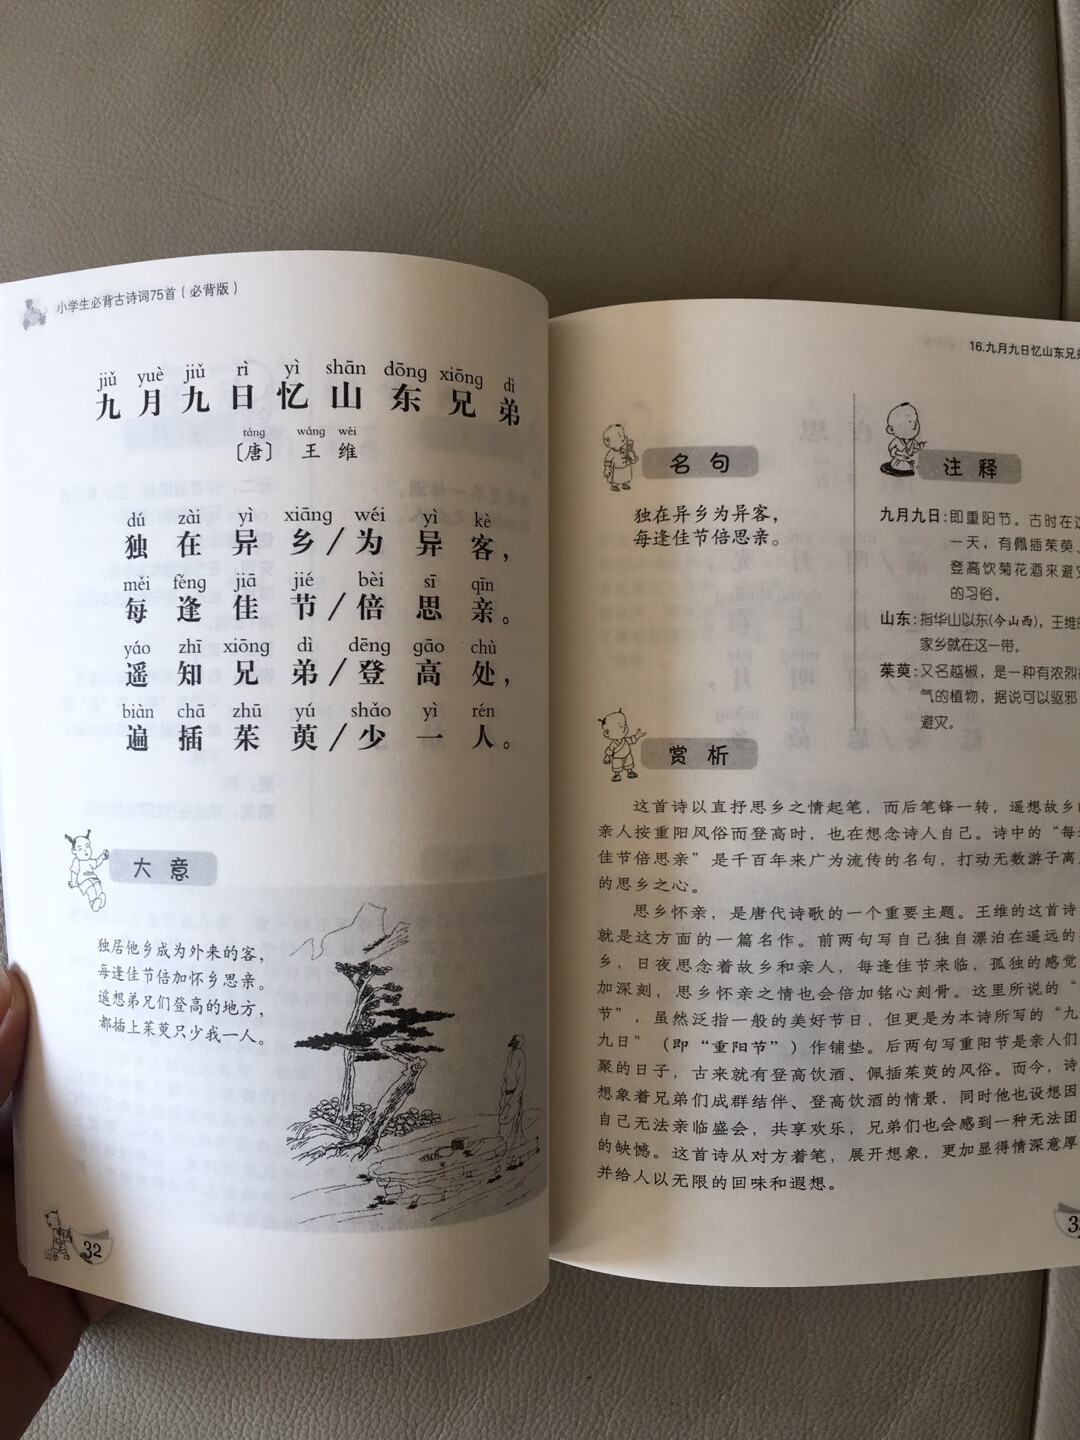 小学生必背古诗词75首（必背版）
jiǔ yuè jiǔ rì yì shān dōng xiōng dì
九月九日忆山东兄弟
táng wáng wéi
〔唐〕 王 维
dú zài yì xiāng wéi yì kè
独在异乡/为异客，
měi féng jiā jié bèi sī qīn
每逢佳节/倍思亲。
yáo zhī xiōng dì dēng gāo chù
遥知兄弟/登高处，
biàn chā zhū yú shǎo yì rén
遍插茱萸/少一人。
大意
独居他乡成为外来的客，
每逢佳节倍加怀乡思亲。
遥想弟兄们登高的地方，
都插上茱萸只少我一人。
32
16.九月九日忆山东兄弟
名句
独在异乡为异客，
每逢佳节倍思亲。
注释
九月九日：即重阳节。古时在这
一天，有佩插茱萸、
登高饮菊花酒来避灾
的习俗。
山东：指华山以东(今山西)，王维的
家乡就在这一带。
茱萸：又名越椒，是一种有浓烈
气的植物，据说可以驱邪
避灾。
赏析
这首诗以直抒思乡之情起笔，而后笔锋一转，遥想故乡的
亲人按重阳风俗而登高时，也在想念诗人自己。诗中的“每逢
佳节倍思亲”是千百年来广为流传的名句，打动无数游子离人
的思乡之心。
思乡怀亲，是唐代诗歌的一个重要主题。王维的这首诗
就是这方面的一篇名作。前两句写自己独自漂泊在遥远的
乡，日夜思念着故乡和亲人，每逢佳节来临，孤独的感觉
加深刻，思乡怀亲之情也会倍加铭心刻骨。这里所说的“
节”，虽然泛指一般的美好节日，但更是为本诗所写的“九
九日”（即“重阳节”）作铺垫。后两句写重阳节是亲人们
聚的日子，古来就有登高饮酒、佩插茱萸的风俗。而今，诗
想象着兄弟们成群结伴、登高饮酒的情景，同时他也设想因
自己无法亲临盛会，共享欢乐，兄弟们也会感到一种无法团
的缺憾。这首诗从对方着笔，展开想象，更加显得情深意厚
并给人以无限的回味和遐想。